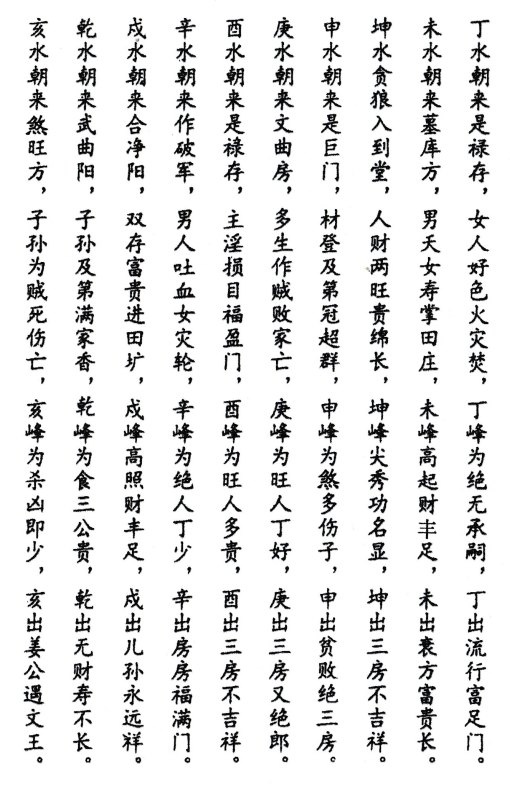 丁水朝来是禄存，女人好色火灾焚，丁峰为绝无承嗣，丁出流行富足门。
未水朝来墓库方，男夭女寿掌田庄，未峰高起财丰足，未出衰方富贵长。
坤水贪狼入到堂，人财两旺贵绵长，坤峰尖秀功名显，坤出三房不吉祥。
申水朝来是巨门，材登及第冠超群，申峰为煞多伤子，申出贫败绝三房。
庚水朝来文曲房，多生作贼败家亡，庚峰为旺人丁好，庚出三房又绝郎。
酉水朝来是禄存，主淫损目福盈门，酉峰为旺人多贵，酉出三房不吉祥。
辛水朝来作破军，男人吐血女灾轮，辛峰为绝人丁少，辛出房房福满门。
戍水朝来合净阳，双存富贵进田圹，戍峰高照财丰足，戍出儿孙永远祥。
乾水朝来武曲阳，子孙及第满家香，乾峰为食三公贵，乾出无财寿不长。
亥水朝来煞旺方，子孙为贼死伤亡，亥峰为杀凶即少，亥出姜公遇文王。